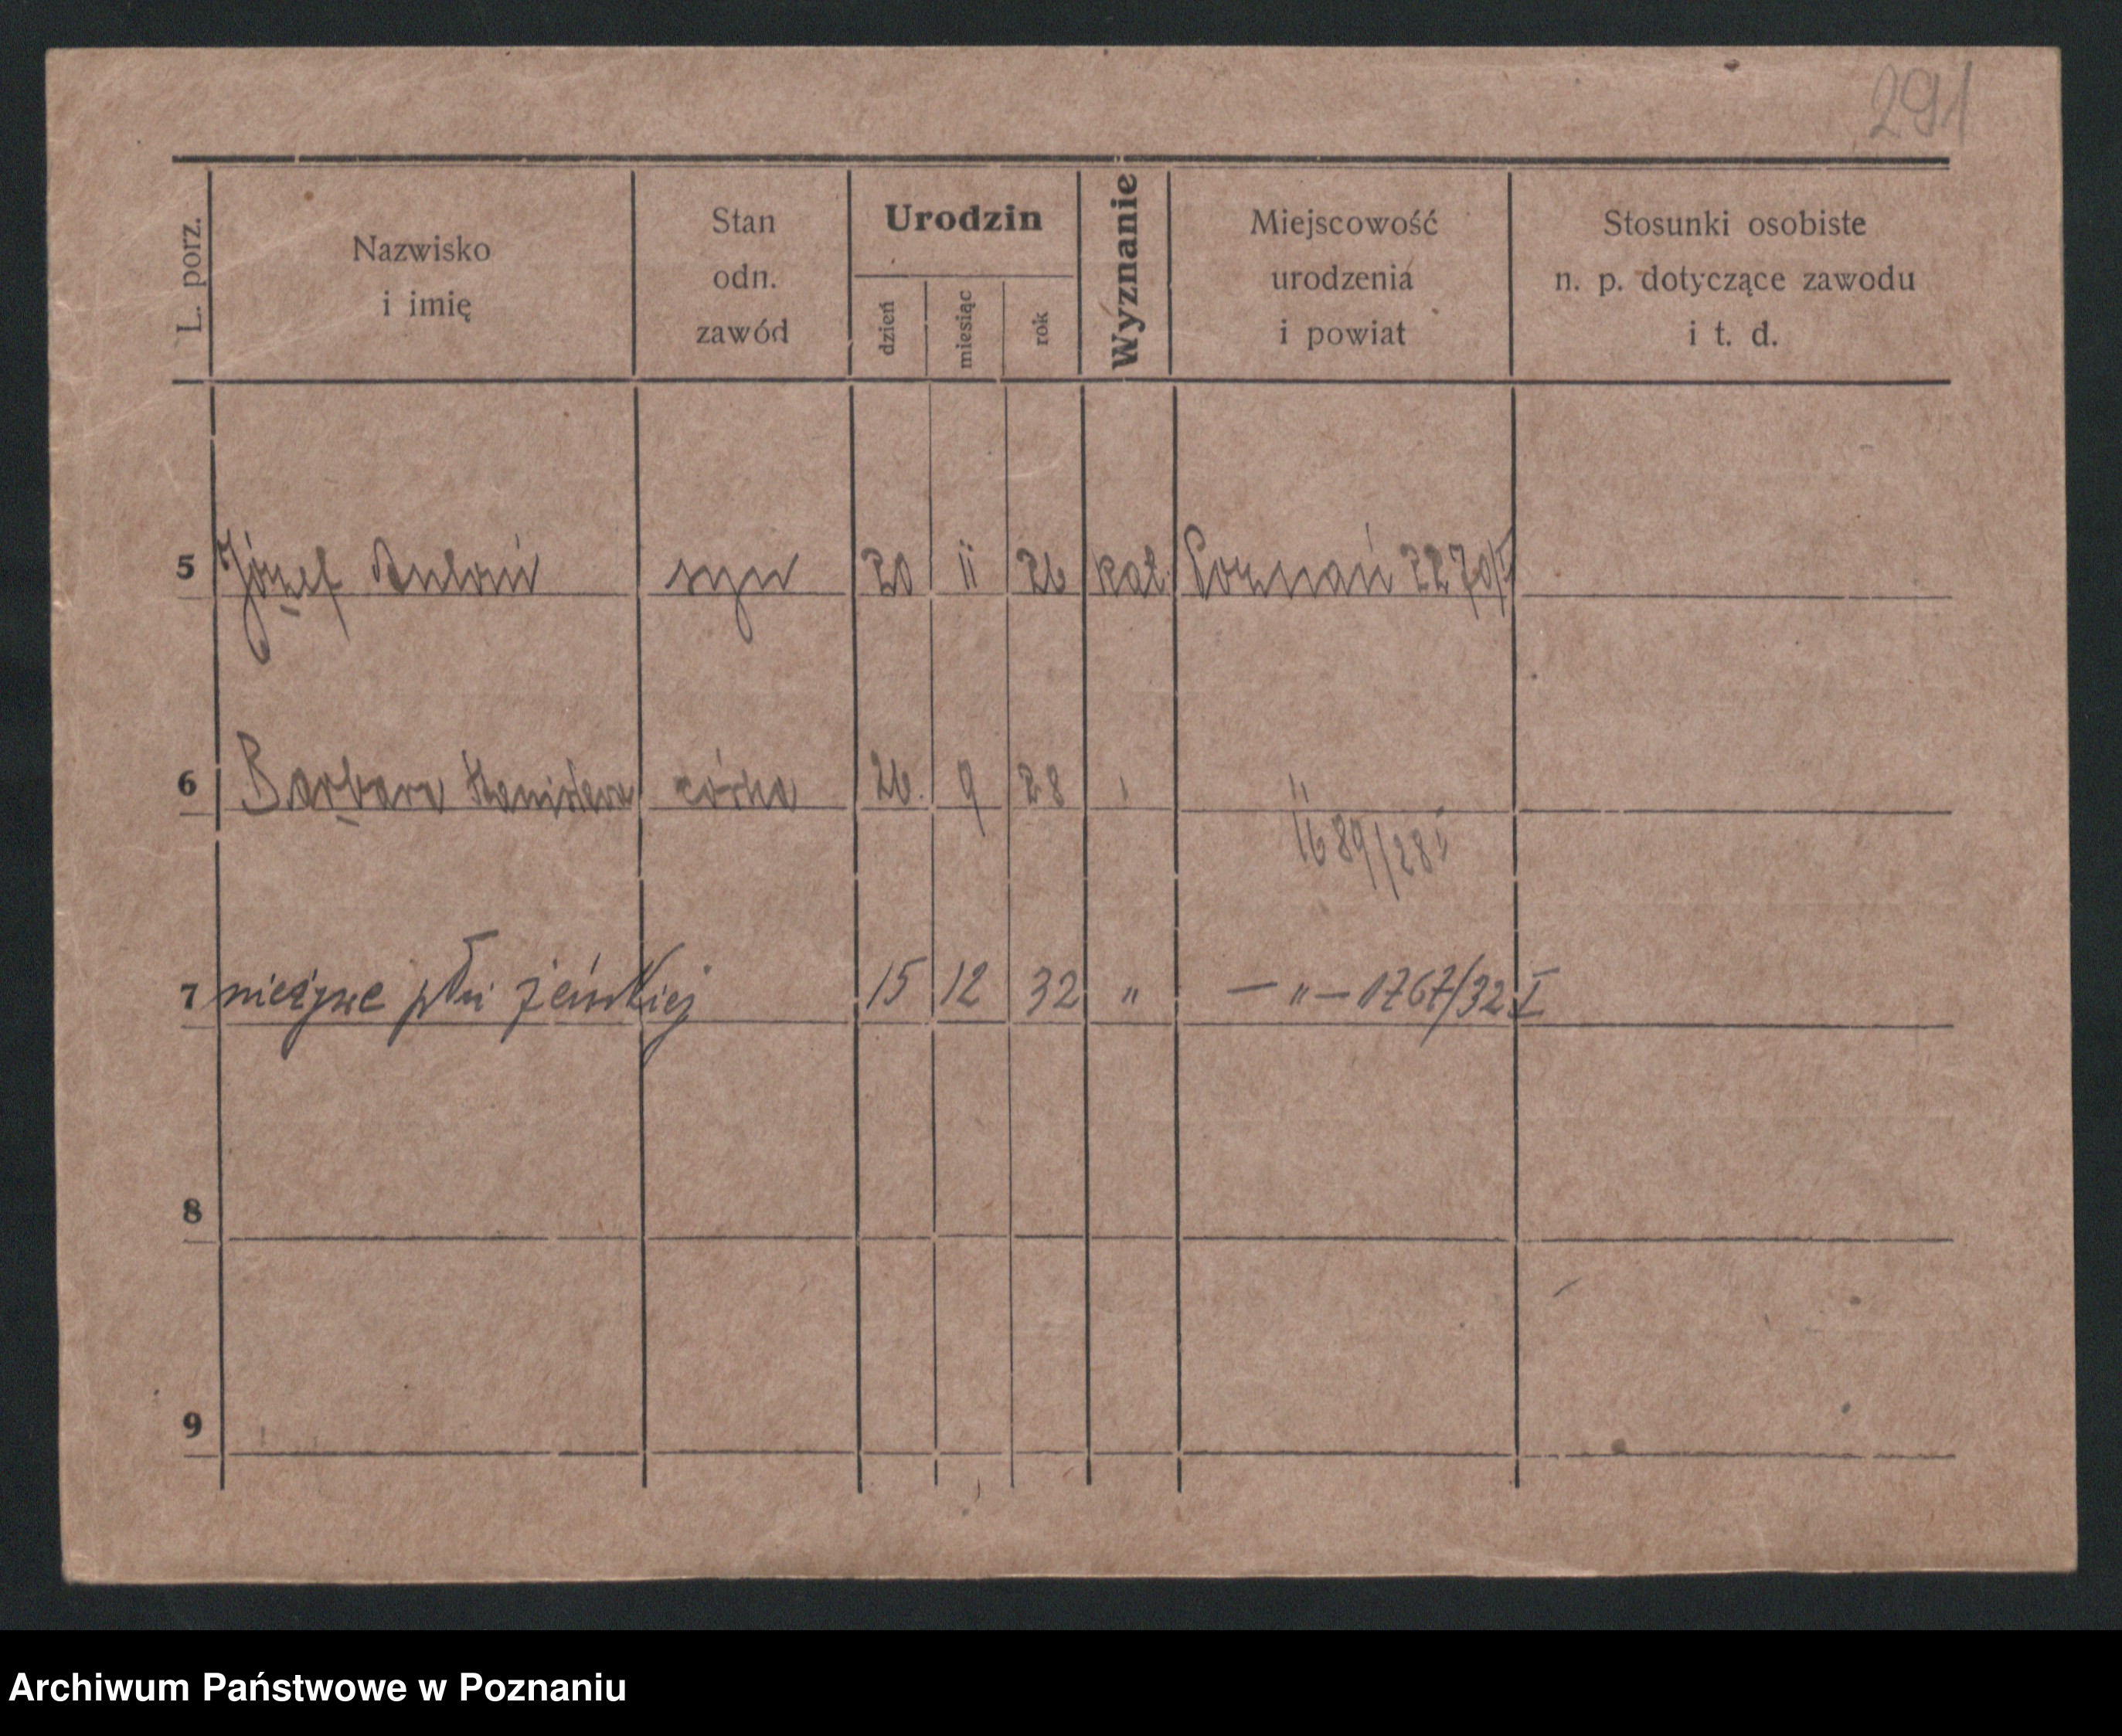 291
L. porz. Nazwisko i imię Stan odn. zawód Urodzin dzień miesiąc rok Wyznanie Miejscowość urodzenia i powiat Stosunki osobiste n. p. dotyczące zawodu i t. d.
5 Józef Antoni syn 20 ii 26 kat. Poznań 2270/I
6 Barbara Stanisława córka 26. 9 28 " "
1689/28
7 nieżywe płci żeńskiej 15 12 32 " — " — 1767/32 I
8
9
Archiwum Państwowe w Poznaniu